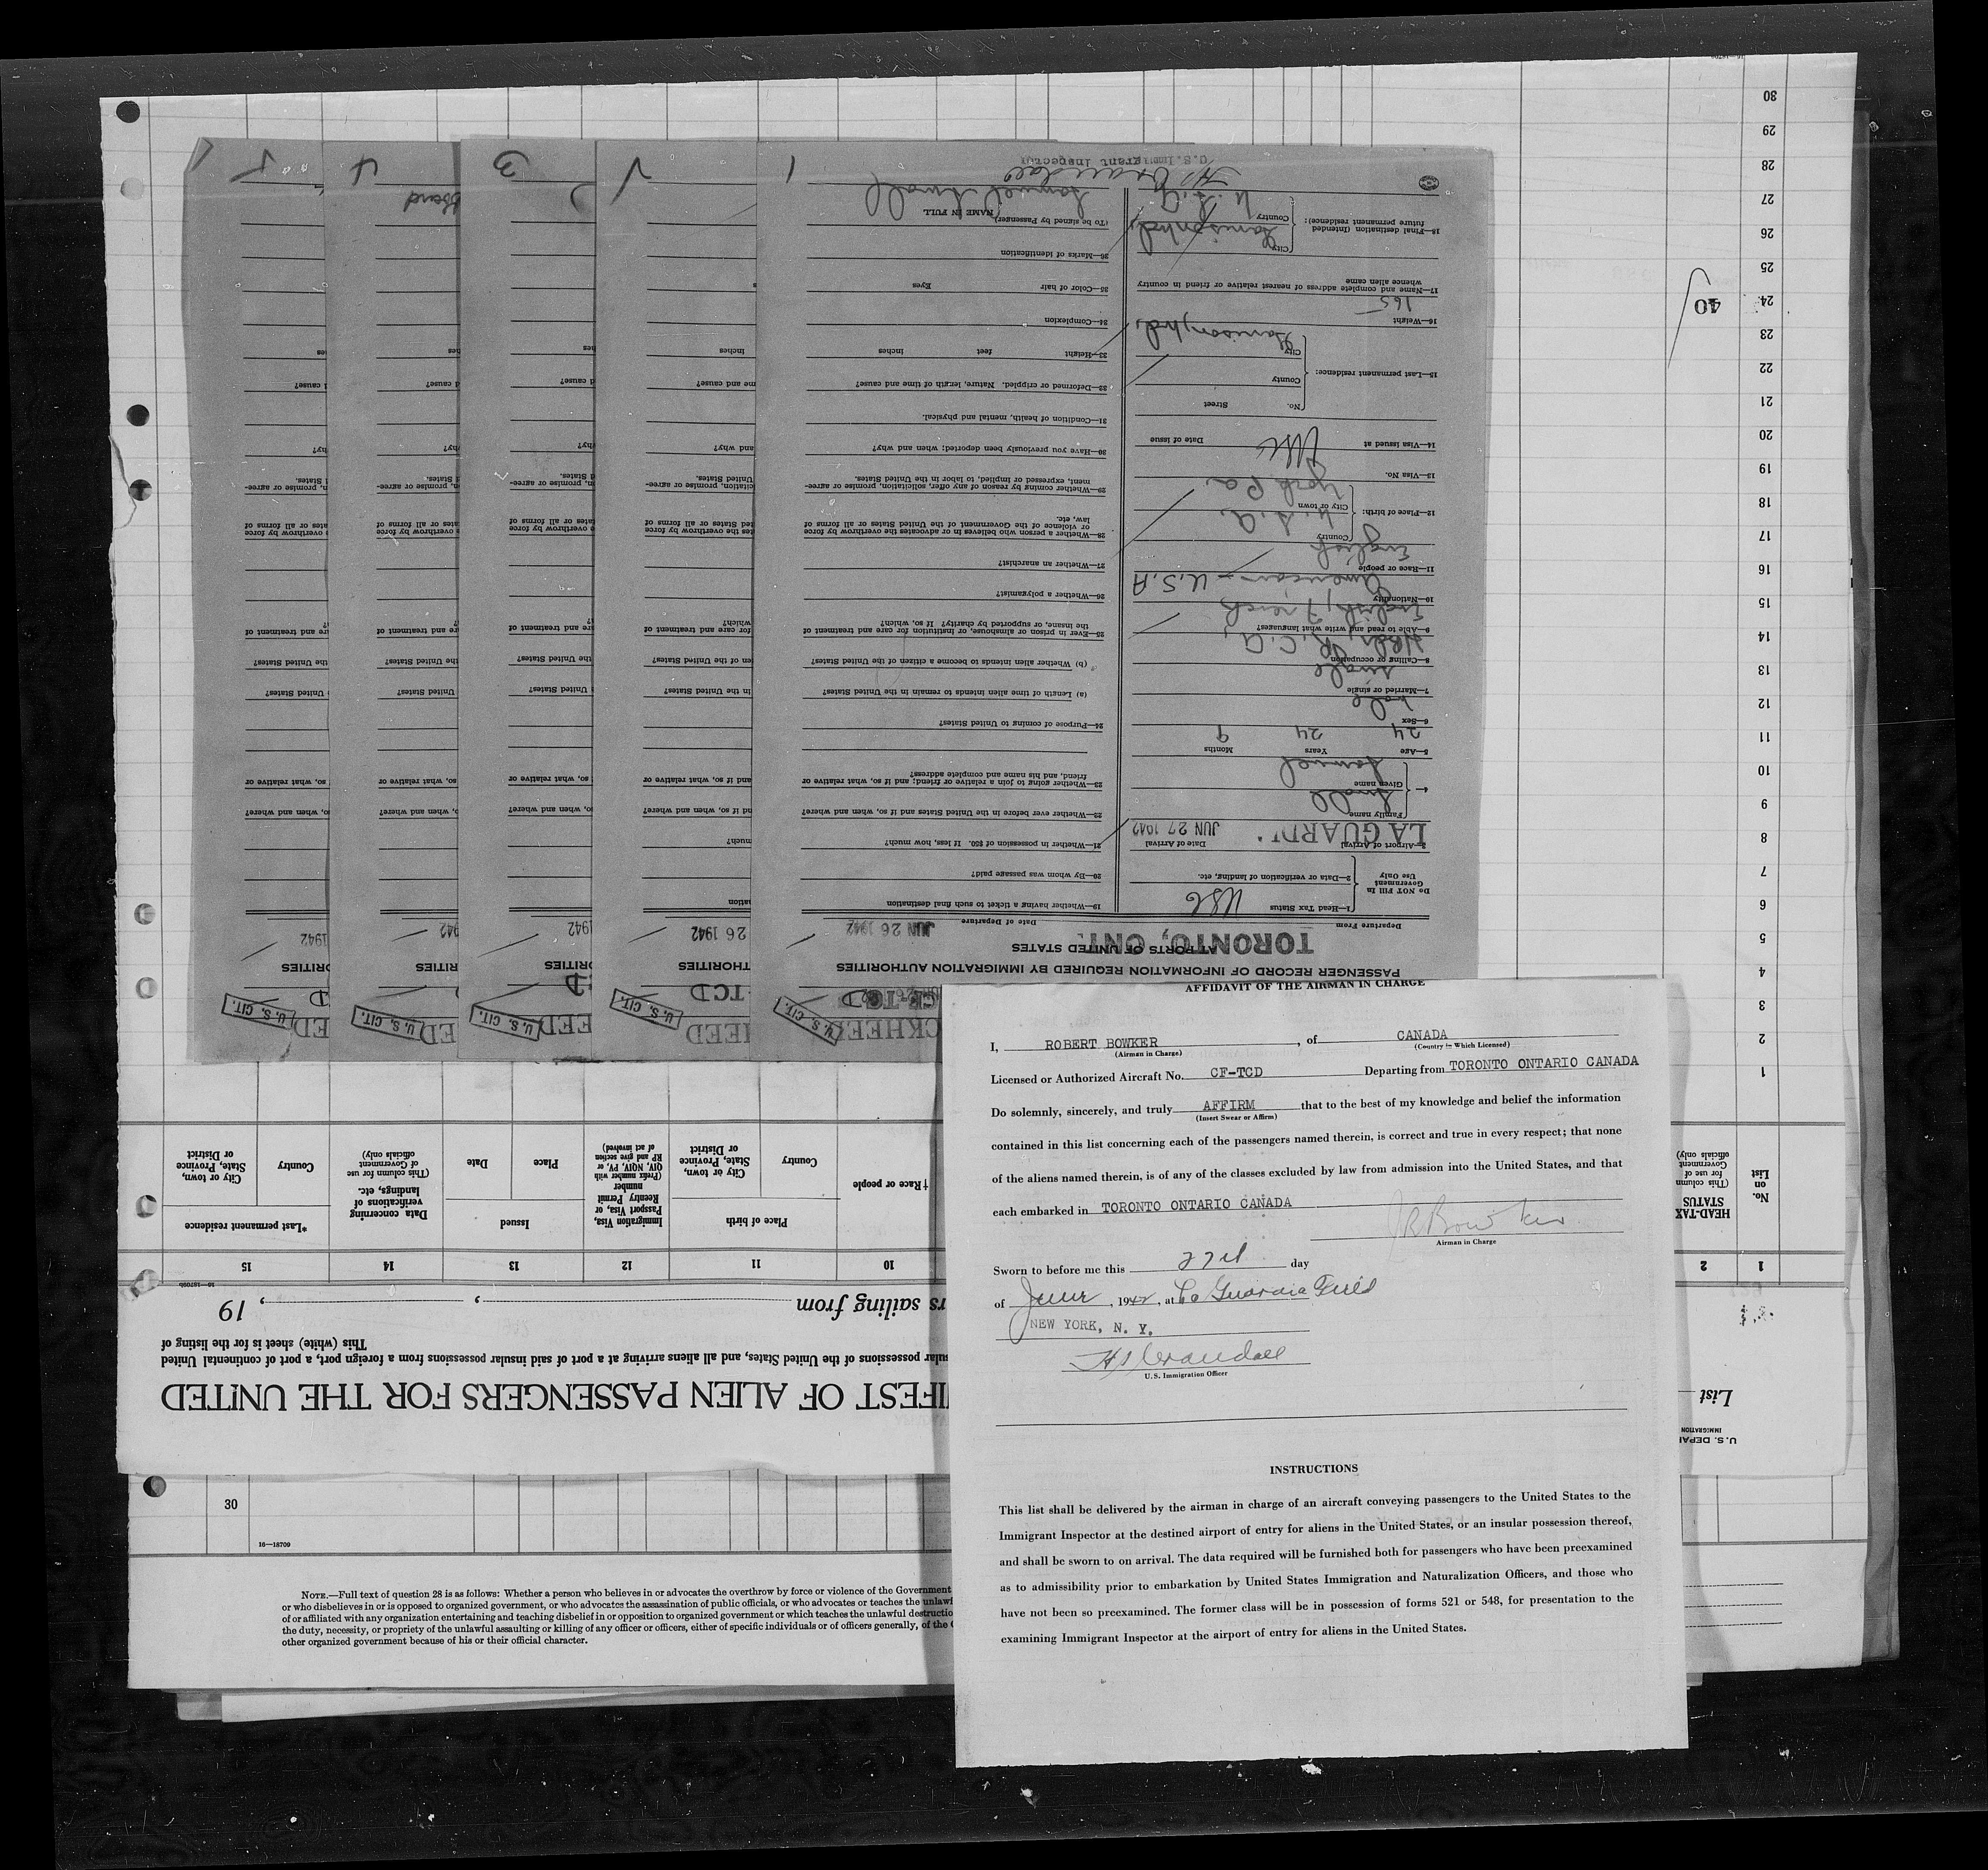 AFFIDAVIT OF THE AIRMAN IN CHARGE
I, ROBERT BOWKER, of CANADA
(Airman in Charge) (Country in Which Licensed)
Licensed or Authorized Aircraft No. CF-TCD Departing from TORONTO ONTARIO CANADA
Do solemnly, sincerely, and truly AFFIRM that to the best of my knowledge and belief the information
(Insert Swear or Affirm)
contained in this list concerning each of the passengers named therein, is correct and true in every respect; that none
of the aliens named therein, is of any of the classes excluded by law from admission into the United States, and that
each embarked in TORONTO ONTARIO CANADA
Airman in Charge
Sworn to before me this 27th day
of June, 1942, at La Guardia Field
NEW YORK, N. Y.
H J Crandall
U.S. Immigration Officer
INSTRUCTIONS
This list shall be delivered by the airman in charge of an aircraft conveying passengers to the United States to the
Immigrant Inspector at the destined airport of entry for aliens in the United States, or an insular possession thereof,
and shall be sworn to on arrival. The data required will be furnished both for passengers who have been preexamined
as to admissibility prior to embarkation by United States Immigration and Naturalization Officers, and those who
have not been so preexamined. The former class will be in possession of forms 521 or 548, for presentation to the
examining Immigrant Inspector at the airport of entry for aliens in the United States.
PASSENGER RECORD OF INFORMATION REQUIRED BY IMMIGRATION AUTHORITIES
AT PORTS OF UNITED STATES
TORONTO, ONT.
Departure From
Date of Departure JUN 26 1942
U. S. CIT.
Do NOT Fill In
Government
Use Only
1—Head Tax Status USC
2—Data or verification of landing, etc.
3—Airport of Arrival LA GUARDI
Date of Arrival JUN 27 1942
4—
Family name
Given name Samuel
5—Age 24 Years 24 Months 9
6—Sex Male
7—Married or single Single
8—Calling or occupation R.C.A.
9—Able to read and write what languages? English, French
10—Nationality American - U.S.A
11—Race or people English
12—Place of birth: Country U.S.A.
City or town York Pa.
13—Visa No.
14—Visa issued at USC Date of issue
15—Last permanent residence:
No. Street
County
City
16—Weight 165
17—Name and complete address of nearest relative or friend in country
whence alien came
18—Final destination (Intended
future permanent residence):
City
Country U.S.A.
H J Crandall
U.S. Immigrant Inspector
19—Whether having a ticket to such final destination
20—By whom was passage paid?
21—Whether in possession of $50. If less, how much?
22—Whether ever before in the United States and if so, when and where?
23—Whether going to join a relative or friend; and if so, what relative or
friend, and his name and complete address?
24—Purpose of coming to United States?
(a) Length of time alien intends to remain in the United States?
(b) Whether alien intends to become a citizen of the United States?
25—Ever in prison or almshouse, or institution for care and treatment of
the insane, or supported by charity? If so, which?
26—Whether a polygamist?
27—Whether an anarchist?
28—Whether a person who believes in or advocates the overthrow by force
or violence of the Government of the United States or all forms of
law, etc.
29—Whether coming by reason of any offer, solicitation, promise or agree-
ment, expressed or implied, to labor in the United States.
30—Have you previously been deported; when and why?
31—Condition of health, mental and physical.
32—Deformed or crippled. Nature, length of time and cause?
33—Height feet inches
34—Complexion
35—Color of hair Eyes
36—Marks of identification
(To be signed by Passenger)
NAME IN FULL
1
3
4
5
U. S. CIT.
U. S. CIT.
U. S. CIT.
U. S. CIT.
26 1942
1942
1942
40
IFEST OF ALIEN PASSENGERS FOR THE UNITED
ular possessions of the United States, and all aliens arriving at a port of said insular possessions from a foreign port, a port of continental United
This (white) sheet is for the listing of
rs sailing from , , 19
1 2
10 11 12 13 14 15
No.
on
List
HEAD-TAX
STATUS
(This column
for use of
Government
officials only)
†Race or people
Place of birth
Country
City or town,
State, Province
or District
Immigration Visa,
Passport Visa, or
Reentry Permit
number
(Prefix number with
QIV, NQIV, PV, or
RP and give section
of act involved)
Issued
Place
Date
Data concerning
verifications of
landings, etc.
(This column for use
of Government
officials only)
*Last permanent residence
Country
City or town,
State, Province
or District
1
2
3
4
5
6
7
8
9
10
11
12
13
14
15
16
17
18
19
20
21
22
23
24
25
26
27
28
29
30
U. S. DEPAR
IMMIGRATION
List
30
16—18709
NOTE.—Full text of question 28 is as follows: Whether a person who believes in or advocates the overthrow by force or violence of the Government
or who disbelieves in or is opposed to organized government, or who advocates the assassination of public officials, or who advocates or teaches the unlawf
of or affiliated with any organization entertaining and teaching disbelief in or opposition to organized government or which teaches the unlawful destructio
the duty, necessity, or propriety of the unlawful assaulting or killing of any officer or officers, either of specific individuals or of officers generally, of the
other organized government because of his or their official character.